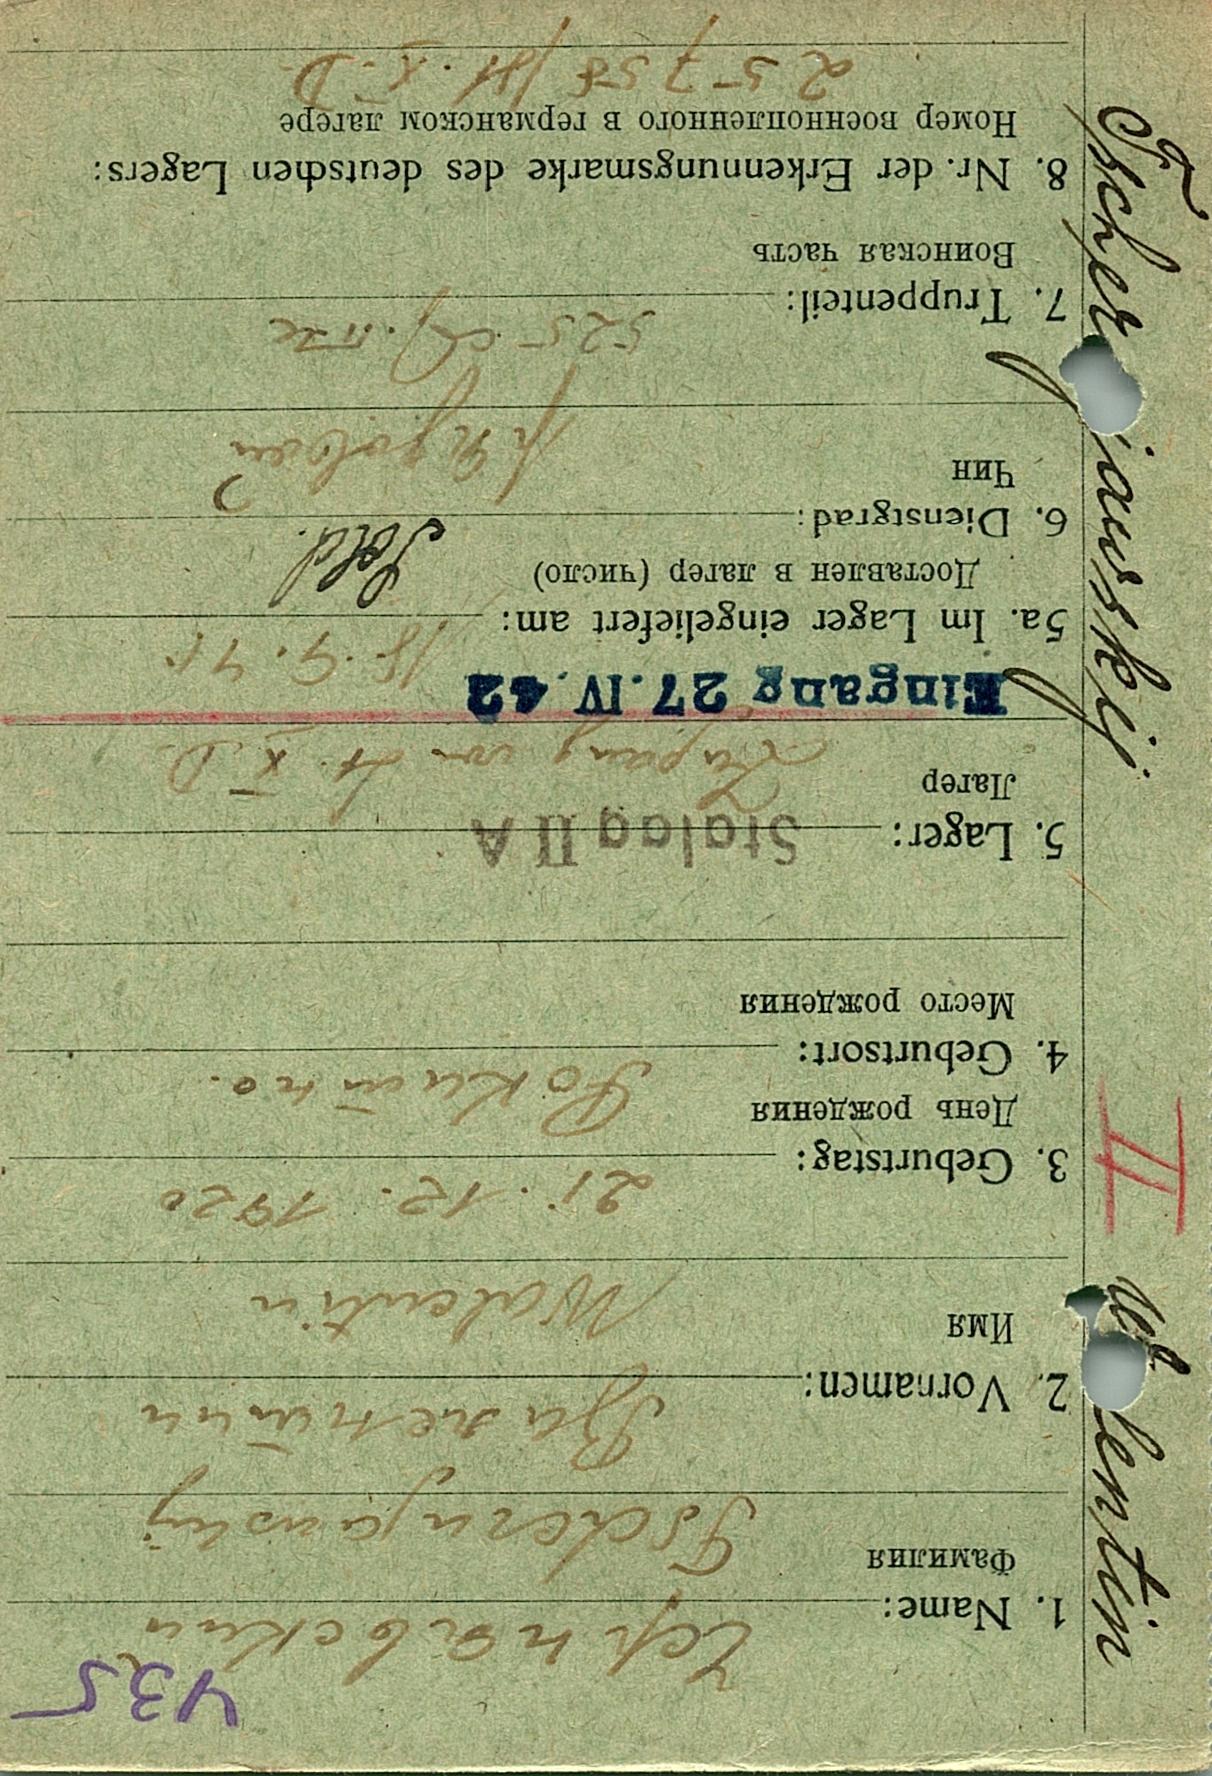 435
1. Name: Чернявский
Фамилия
Tschernjawskij
2. Vornamen: Валентин
Имя
Walentin
3. Geburtstag: 21. 12. 1920
День рождения
4. Geburtsort:
Место рождения
5. Lager: Stalag II A
Лагер
Zugang von St. X. D.
Eingang 27. IV. 42
5a. Im Lager eingeliefert am: 18. 9. 41
Доставлен в лагер (число)
6. Dienstgrad: Sold.
Чин
7. Truppenteil: 525
Воинская часть
8. Nr. der Erkennungsmarke des deutschen Lagers:
Номер военнопленного в германском лагере
25758 / St. X. D.
Tscher jawskij
II
Wa lentin